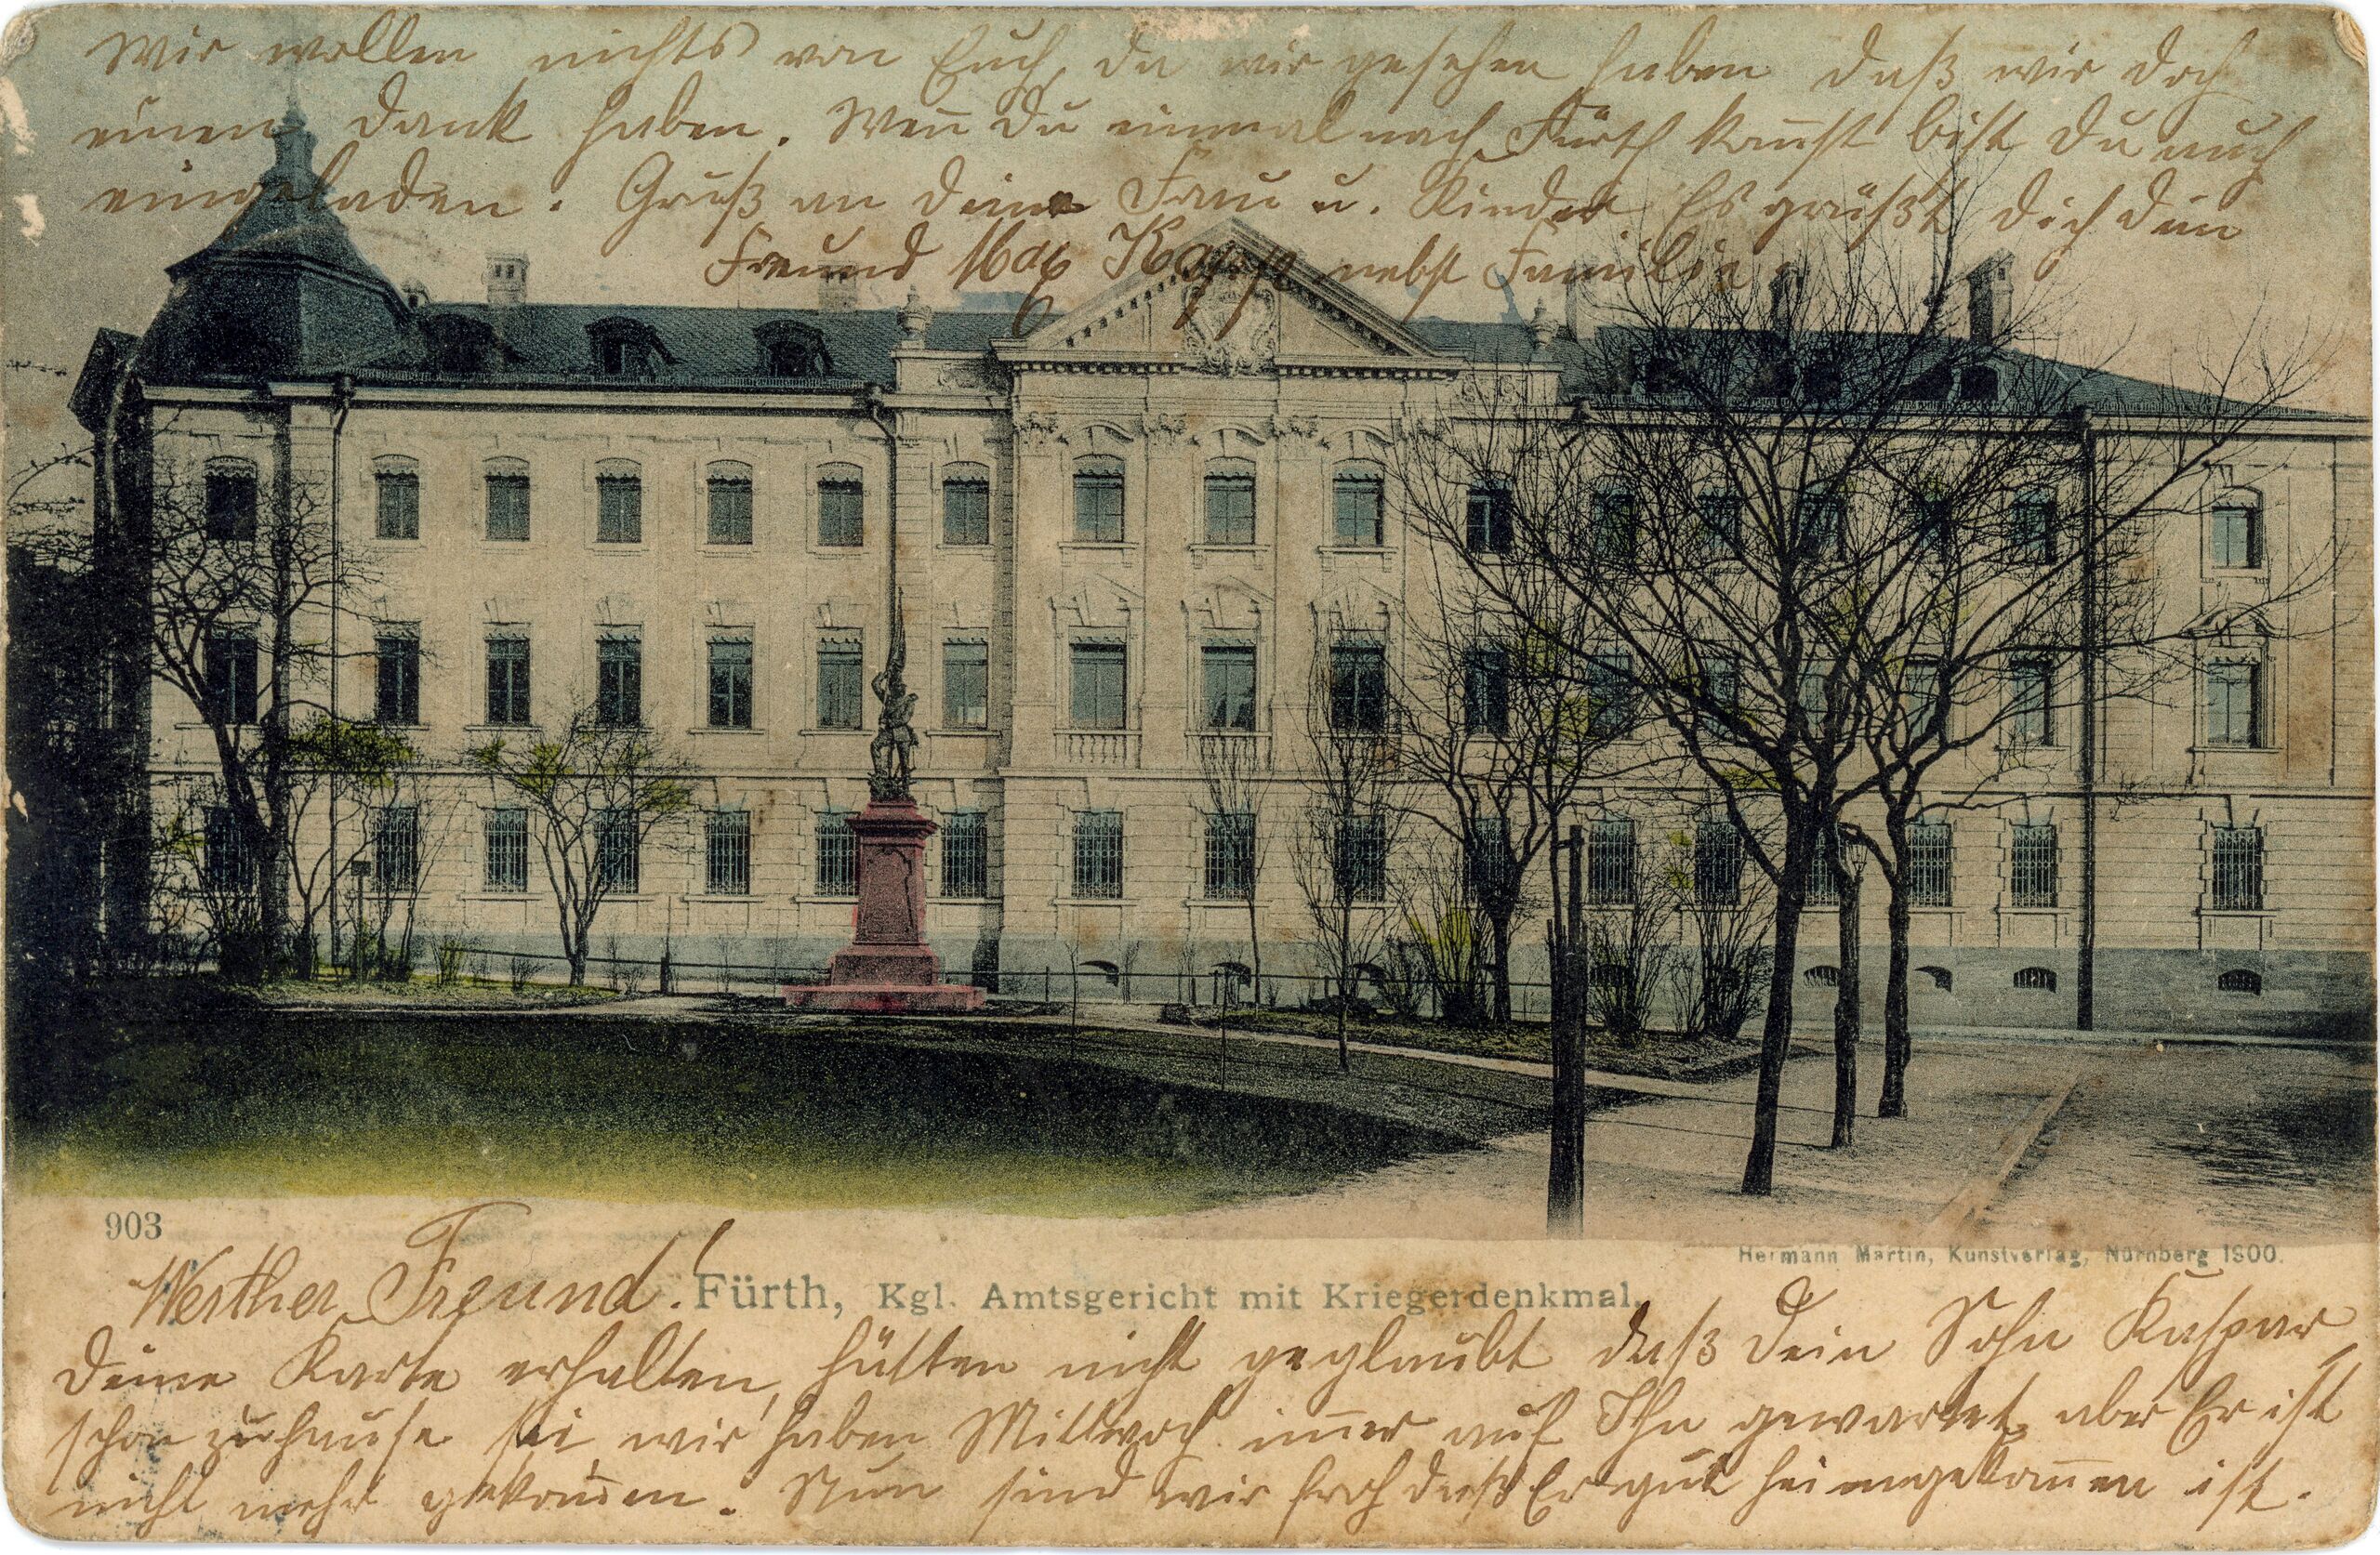 Wir wollen nichts von Euch, da wir gesehen haben daß wir doch
einen Dank haben. Weñ Du einmal nach Fürth kom̃st bist Du auch
eingeladen. Gruß an deine Frau u. Kinder Es grüßt dich dein
Freund Max Kapp nebst Familie.
903
Hermann Martin, Kunstverlag, Nürnberg 1900.
Werther Freund!
Fürth, Kgl. Amtsgericht mit Kriegerdenkmal.
Deine Karte erhalten, hätten nicht geglaubt daß Dein Sohn Kaspar
schon zuhause sei wir haben Mittwoch im̃er auf Ihn gewartet, aber Er ist
nicht mehr gekom̃en. Nun sind wir froh daß Er gut heimgekom̃en ist.